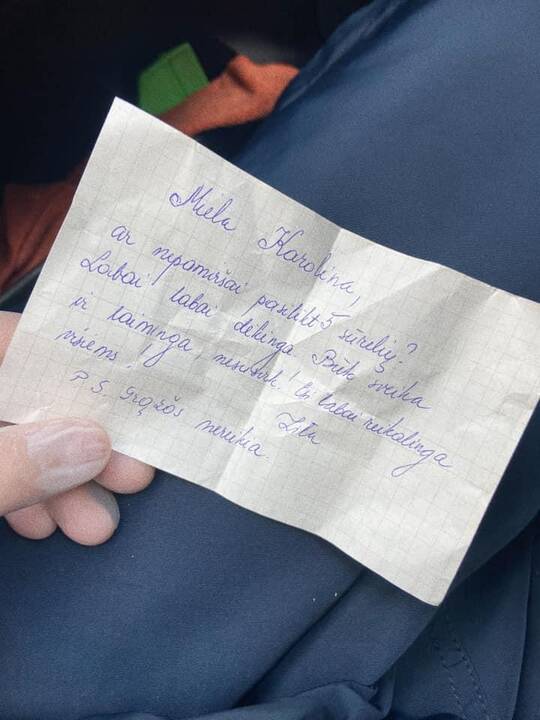 Miela Karolina,
ar nepamiršai pasilikt 5 sūrelių?
Labai labai dėkinga. Būk sveika
ir laiminga, nesusirk! Esi labai reikalinga
visiems! Zita
P.S. Grąžos nereikia.